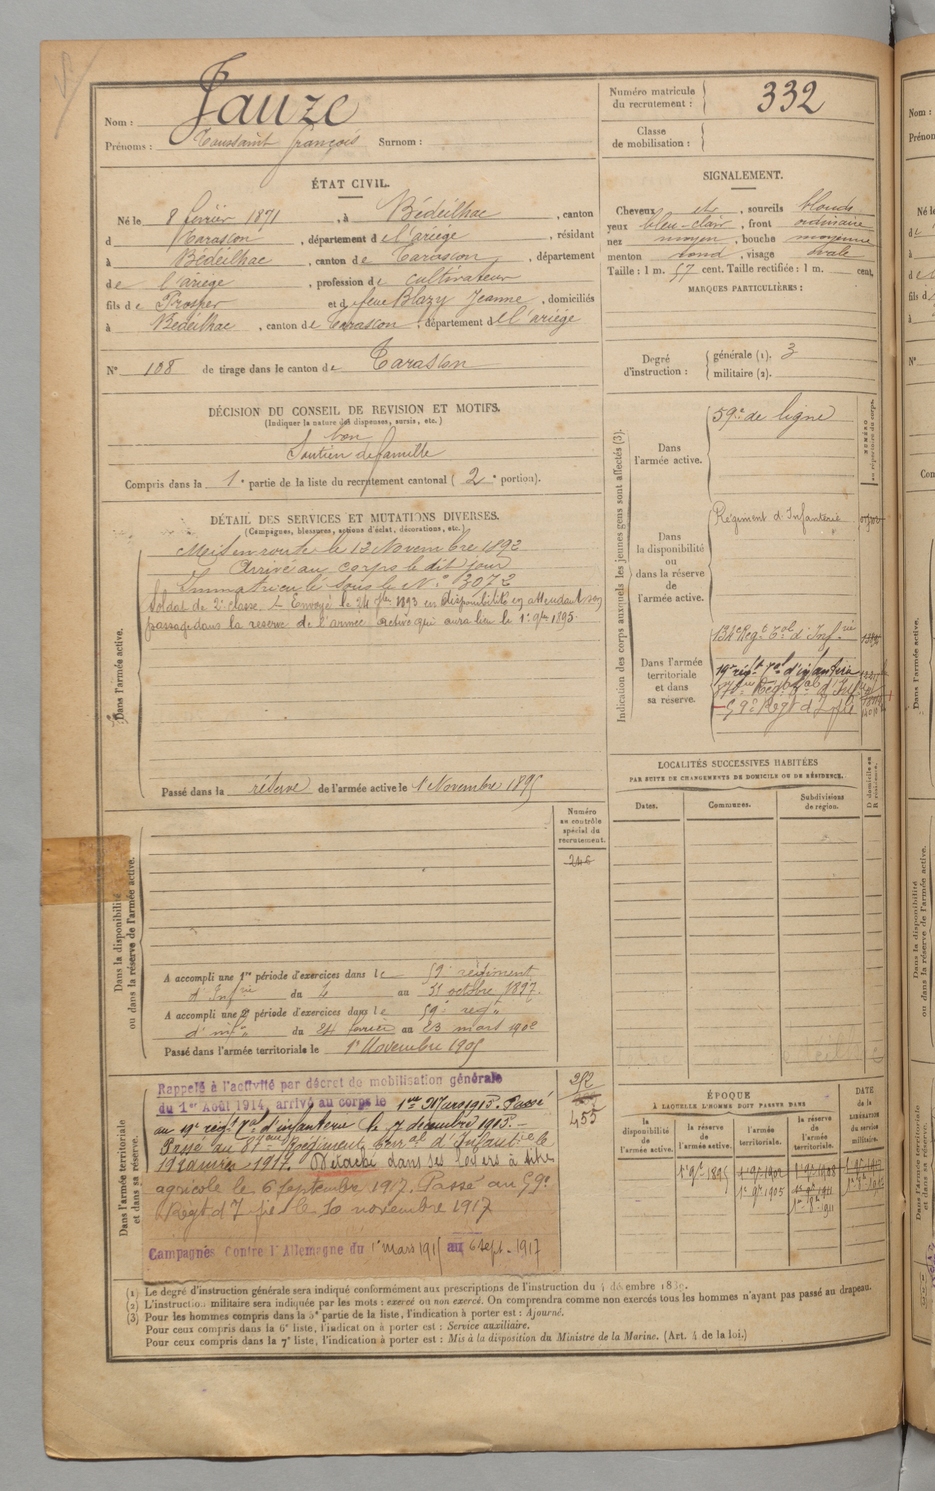 Nom : Jauze
Prénoms : Toussaint françois Surnom :
Numéro matricule du recrutement : 332
Classe de mobilisation :
ÉTAT CIVIL.
Né le 8 février 1871, à Bédeilhac, canton
d Tarascon, département de l'ariège, résidant
à Bédeilhac, canton de Tarascon, département
de l'ariège, profession de cultivateur
fils de Prosper et d feue Blazy Jeanne, domiciliés
à Bédeilhac, canton de Tarascon, département de l'ariége
N° 108 de tirage dans le canton de Tarascon
SIGNALEMENT.
Cheveux et, sourcils blonds
yeux bleu-clair, front ordinaire
nez moyen, bouche moyenne
menton rond, visage ovale
Taille : 1 m. 57 cent. Taille rectifiée : 1 m. cent.
MARQUES PARTICULIÈRES :
Degré d'instruction : générale (1). 3
militaire (2).
DÉCISION DU CONSEIL DE REVISION ET MOTIFS.
(Indiquer la nature des dispenses, sursis, etc.)
bon
Soutien de famille
Compris dans la 1e partie de la liste du recrutement cantonal (2e portion).
DÉTAIL DES SERVICES ET MUTATIONS DIVERSES.
(Campagnes, blessures, actions d'éclat, décorations, etc.
Dans l'armée active.
Mis en route le 13 Novembre 1892
Arrivé au corps le dit jour
Immatriculé sous le N° 3072
Soldat de 2e classe. Envoyé le 24 7bre 1893 en disponibilité en attendant son
passage dans la réserve de l'armée active qui aura lieu le 1er 9bre 1895.
Passé dans la réserve de l'armée active le 1 Novembre 1895
Indication des corps auxquels les jeunes gens sont affectés (3).
Dans l'armée active.
59e de ligne
NUMÉRO au répertoire du corps.
Dans la disponibilité ou dans la réserve de l'armée active.
Régiment d'Infanterie
Dans l'armée territoriale et dans sa réserve.
134e Régt Tal d'Infrie
19e régt Tal d'infanterie
59e Régt d'Infie
LOCALITÉS SUCCESSIVES HABITÉES
PAR SUITE DE CHANGEMENTS DE DOMICILE OU DE RÉSIDENCE.
Dates.
Communes.
Subdivisions de région.
D domicile ou R résidence.
Numéro au contrôle spécial du recrutement.
246
Dans la disponibilité ou dans la réserve de l'armée active.
A accompli une 1re période d'exercices dans le 59e régiment
d'Infrie du 4 au 31 octobre 1897.
A accompli une 2e période d'exercices dans le 59e régt
d'infie du 24 février au 23 mars 1902
Passé dans l'armée territoriale le 1er Novembre 1905
Dans l'armée territoriale et dans sa réserve.
Rappelé à l'activité par décret de mobilisation générale
du 1er Août 1914, arrivé au corps le 1er Mars 1915. Passé
au 19e régt Tal d'infanterie le 7 décembre 1915.
Passé au 87eme Régiment Terral d'Infanterie le
19 janvier 1917. Détaché dans ses foyers à titre
agricole le 6 septembre 1917. Passé au 59e
Régt d'Infie le 30 novembre 1917
Campagnes Contre l'Allemagne du 1er mars 1915 au 6 sept. 1917
455
ÉPOQUE
À LAQUELLE L'HOMME DOIT PASSER DANS
la disponibilité de l'armée active.
la réserve de l'armée active.
l'armée territoriale.
la réserve de l'armée territoriale.
DATE de la LIBÉRATION du service militaire.
1er 9bre 1895
1er 9bre 1905
1er 8bre 1911
(1) Le degré d'instruction générale sera indiqué conformément aux prescriptions de l'instruction du 4 décembre 1889.
(2) L'instruction militaire sera indiquée par les mots : exercé ou non exercé. On comprendra comme non exercés tous les hommes n'ayant pas passé au drapeau.
(3) Pour les hommes compris dans la 5e partie de la liste, l'indication à porter est : Ajourné.
Pour ceux compris dans la 6e liste, l'indication à porter est : Service auxiliaire.
Pour ceux compris dans la 7e liste, l'indication à porter est : Mis à la disposition du Ministre de la Marine. (Art. 4 de la loi.)